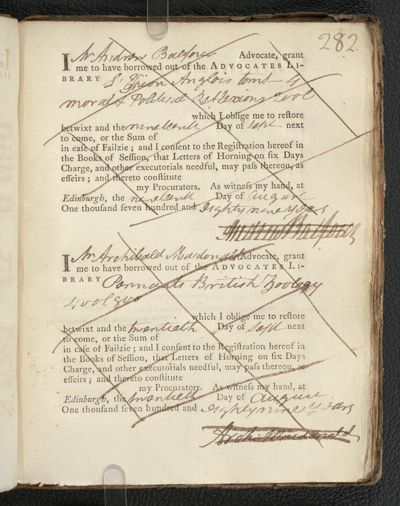 282.
I Mr Andrew Balfour Advocate, grant
me to have borrowed out of the ADVOCATES LI-
BRARY L'Espion Anglois tom 4
moral & Political Reflexions 2 vol
which I oblige me to reſtore
betwixt and the nineteenth Day of Sept next
to come, or the Sum of
in caſe of Failzie; and I conſent to the Regiſtration hereof in
the Books of Seſſion, that Letters of Horning on ſix Days
Charge, and other executorials needful, may paſs thereon, as
effeirs; and thereto conſtitute
my Procurators. As witneſs my hand, at
Edinburgh, the nineteenth Day of August
One thouſand ſeven hundred and eighty nine Years
Andrew Balfour
I Mr Archibald Macdonald Advocate, grant
me to have borrowed out of the ADVOCATES LI-
BRARY Pennants British Zoology
4 vol
which I oblige me to reſtore
betwixt and the twentieth Day of Sept next
to come, or the Sum of
in caſe of Failzie; and I conſent to the Regiſtration hereof in
the Books of Seſſion, that Letters of Horning on ſix Days
Charge, and other executorials needful, may paſs thereon, as
effeirs; and thereto conſtitute
my Procurators. As witneſs my hand, at
Edinburgh, the twentieth Day of August
One thouſand ſeven hundred and eighty nine Years
Archd Macdonald